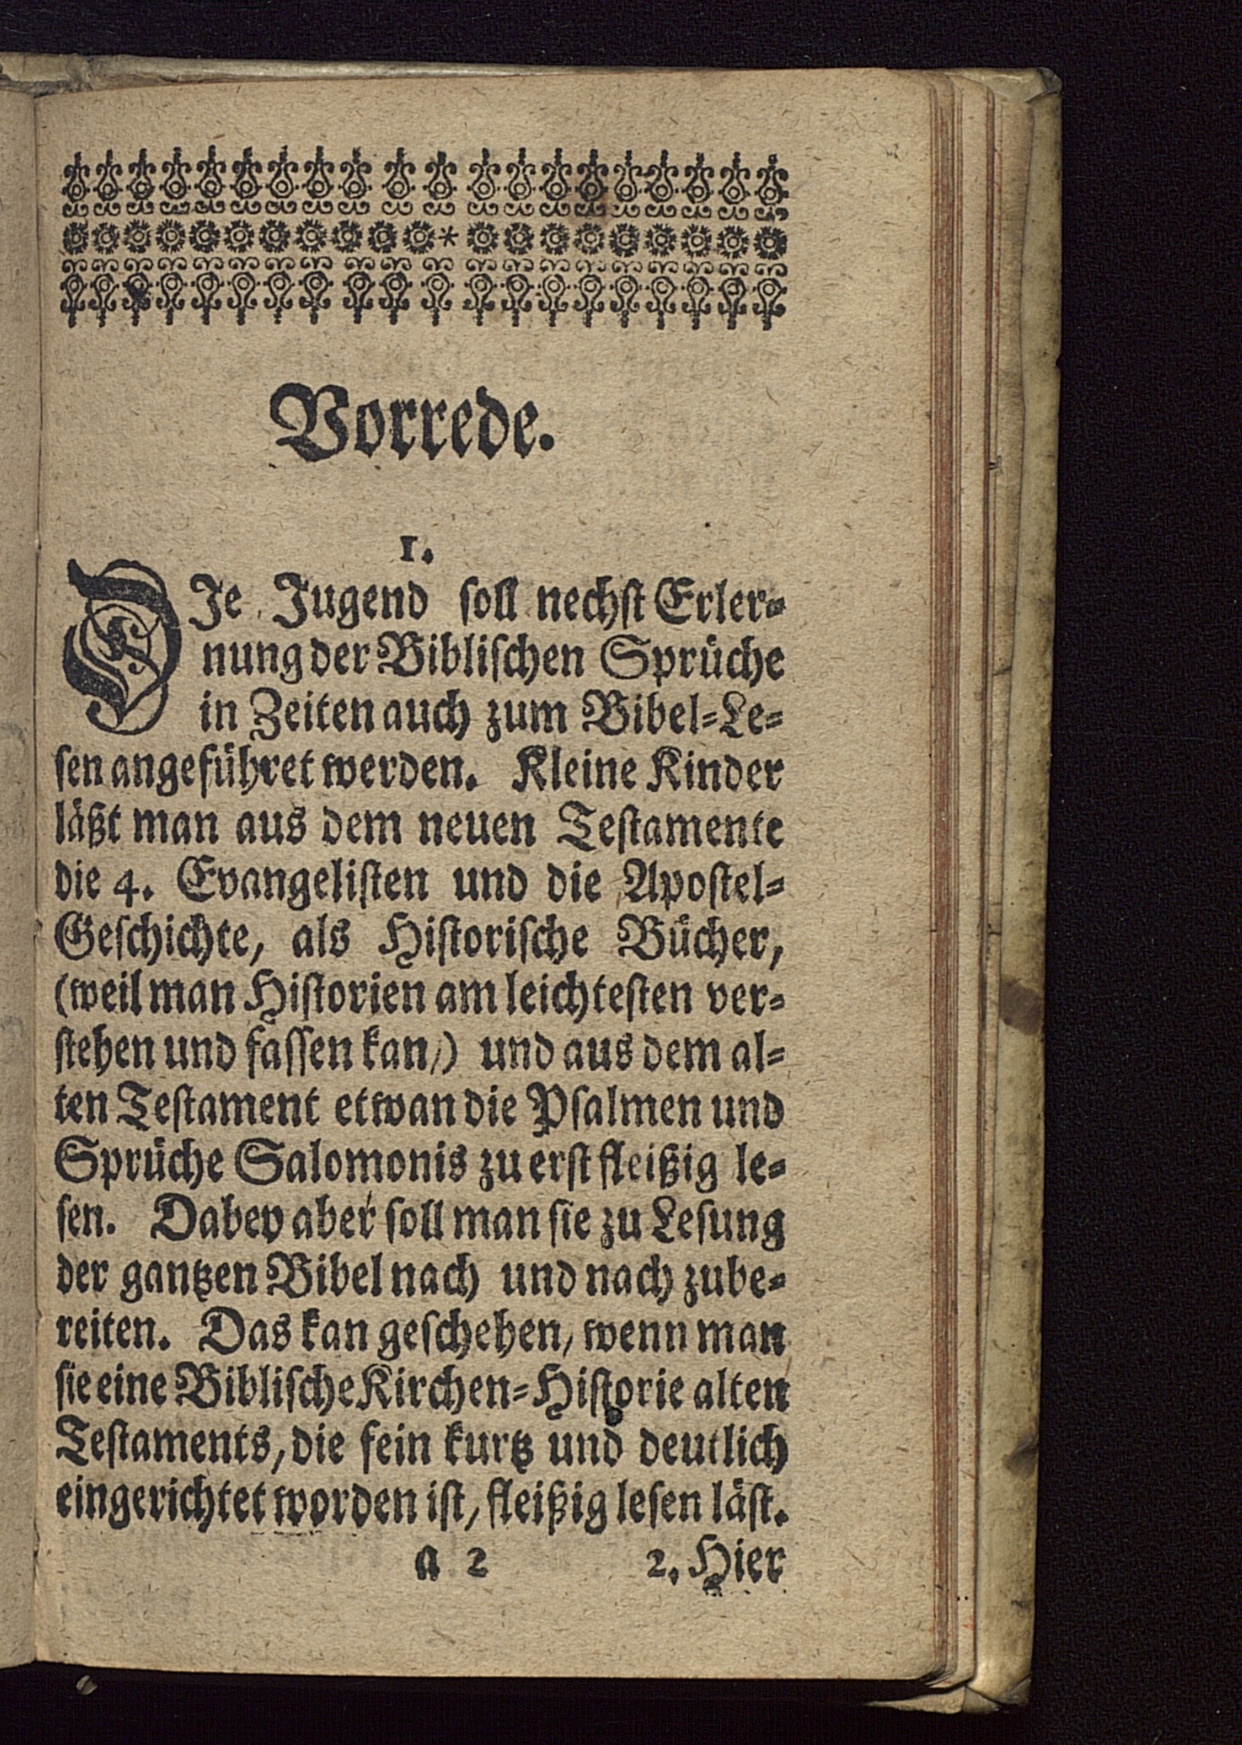 Vorrede.
1.
DJe Jugend soll nechst Erler-
nung der Biblischen Sprüche
in Zeiten auch zum Bibel-Le-
sen angeführet werden. Kleine Kinder
läßt man aus dem neuen Testamente
die 4. Evangelisten und die Apostel-
Geschichte, als Historische Bücher,
(weil man Historien am leichtesten ver-
stehen und fassen kan/) und aus dem al-
ten Testament etwan die Psalmen und
Sprüche Salomonis zu erst fleißig le-
sen. Dabey aber soll man sie zu Lesung
der gantzen Bibel nach und nach zube-
reiten. Das kan geschehen/ wenn man
sie eine Biblische Kirchen-Historie alten
Testaments, die fein kurtz und deutlich
eingerichtet worden ist/ fleißig lesen läst.
a 2 2. Hier